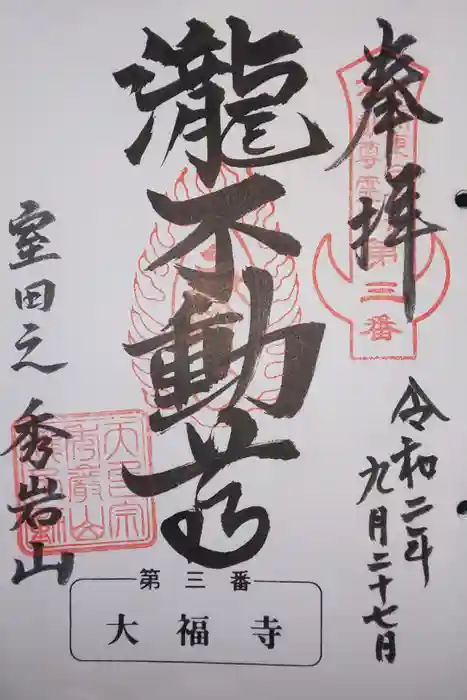 奉拝
第三番
令和二年
九月二十七日
瀧不動尊
室田之
秀岩山
第三番
大福寺